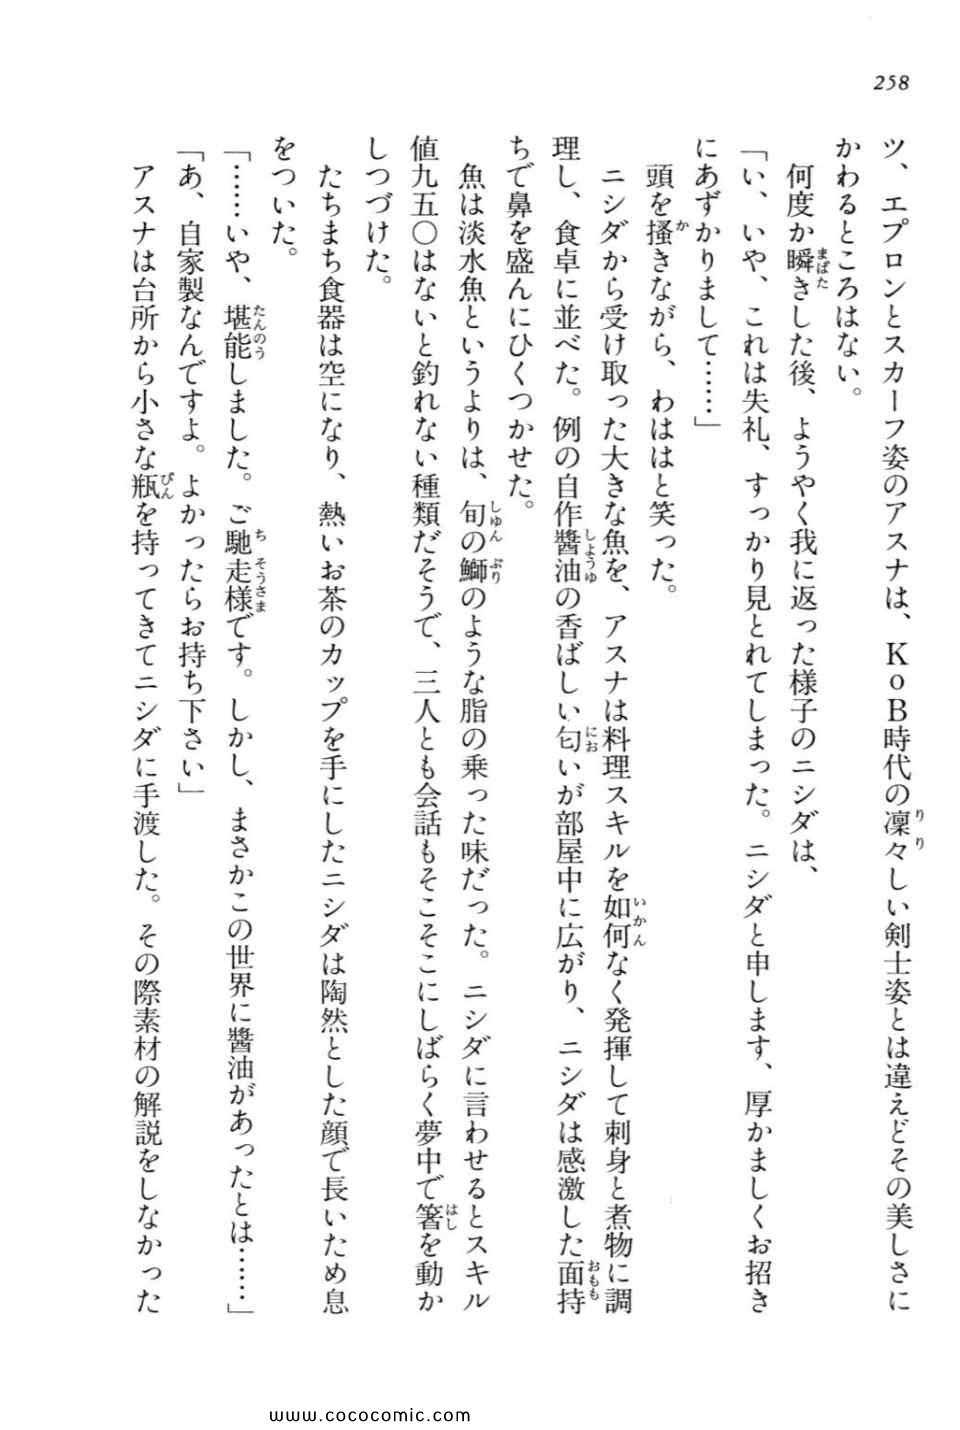 258
ツ、エプロンとスカーフ姿のアスナは、KoB時代の凜々しい剣士姿とは違えどその美しさに
かわるところはない。
何度か瞬きした後、ようやく我に返った様子のニシダは、
「い、いや、これは失礼、すっかり見とれてしまった。ニシダと申します、厚かましくお招き
にあずかりまして……」
頭を掻きながら、わははと笑った。
ニシダから受け取った大きな魚を、アスナは料理スキルを如何なく発揮して刺身と煮物に調
理し、食卓に並べた。例の自作醬油の香ばしい匂いが部屋中に広がり、ニシダは感激した面持
ちで鼻を盛んにひくつかせた。
魚は淡水魚というよりは、旬の鰤のような脂の乗った味だった。ニシダに言わせるとスキル
値九五〇はないと釣れない種類だそうで、三人とも会話もそこそこにしばらく夢中で箸を動か
しつづけた。
たちまち食器は空になり、熱いお茶のカップを手にしたニシダは陶然とした顔で長いため息
をついた。
「……いや、堪能しました。ご馳走様です。しかし、まさかこの世界に醬油があったとは……」
「あ、自家製なんですよ。よかったらお持ち下さい」
アスナは台所から小さな瓶を持ってきてニシダに手渡した。その際素材の解説をしなかった
www.cococomic.com